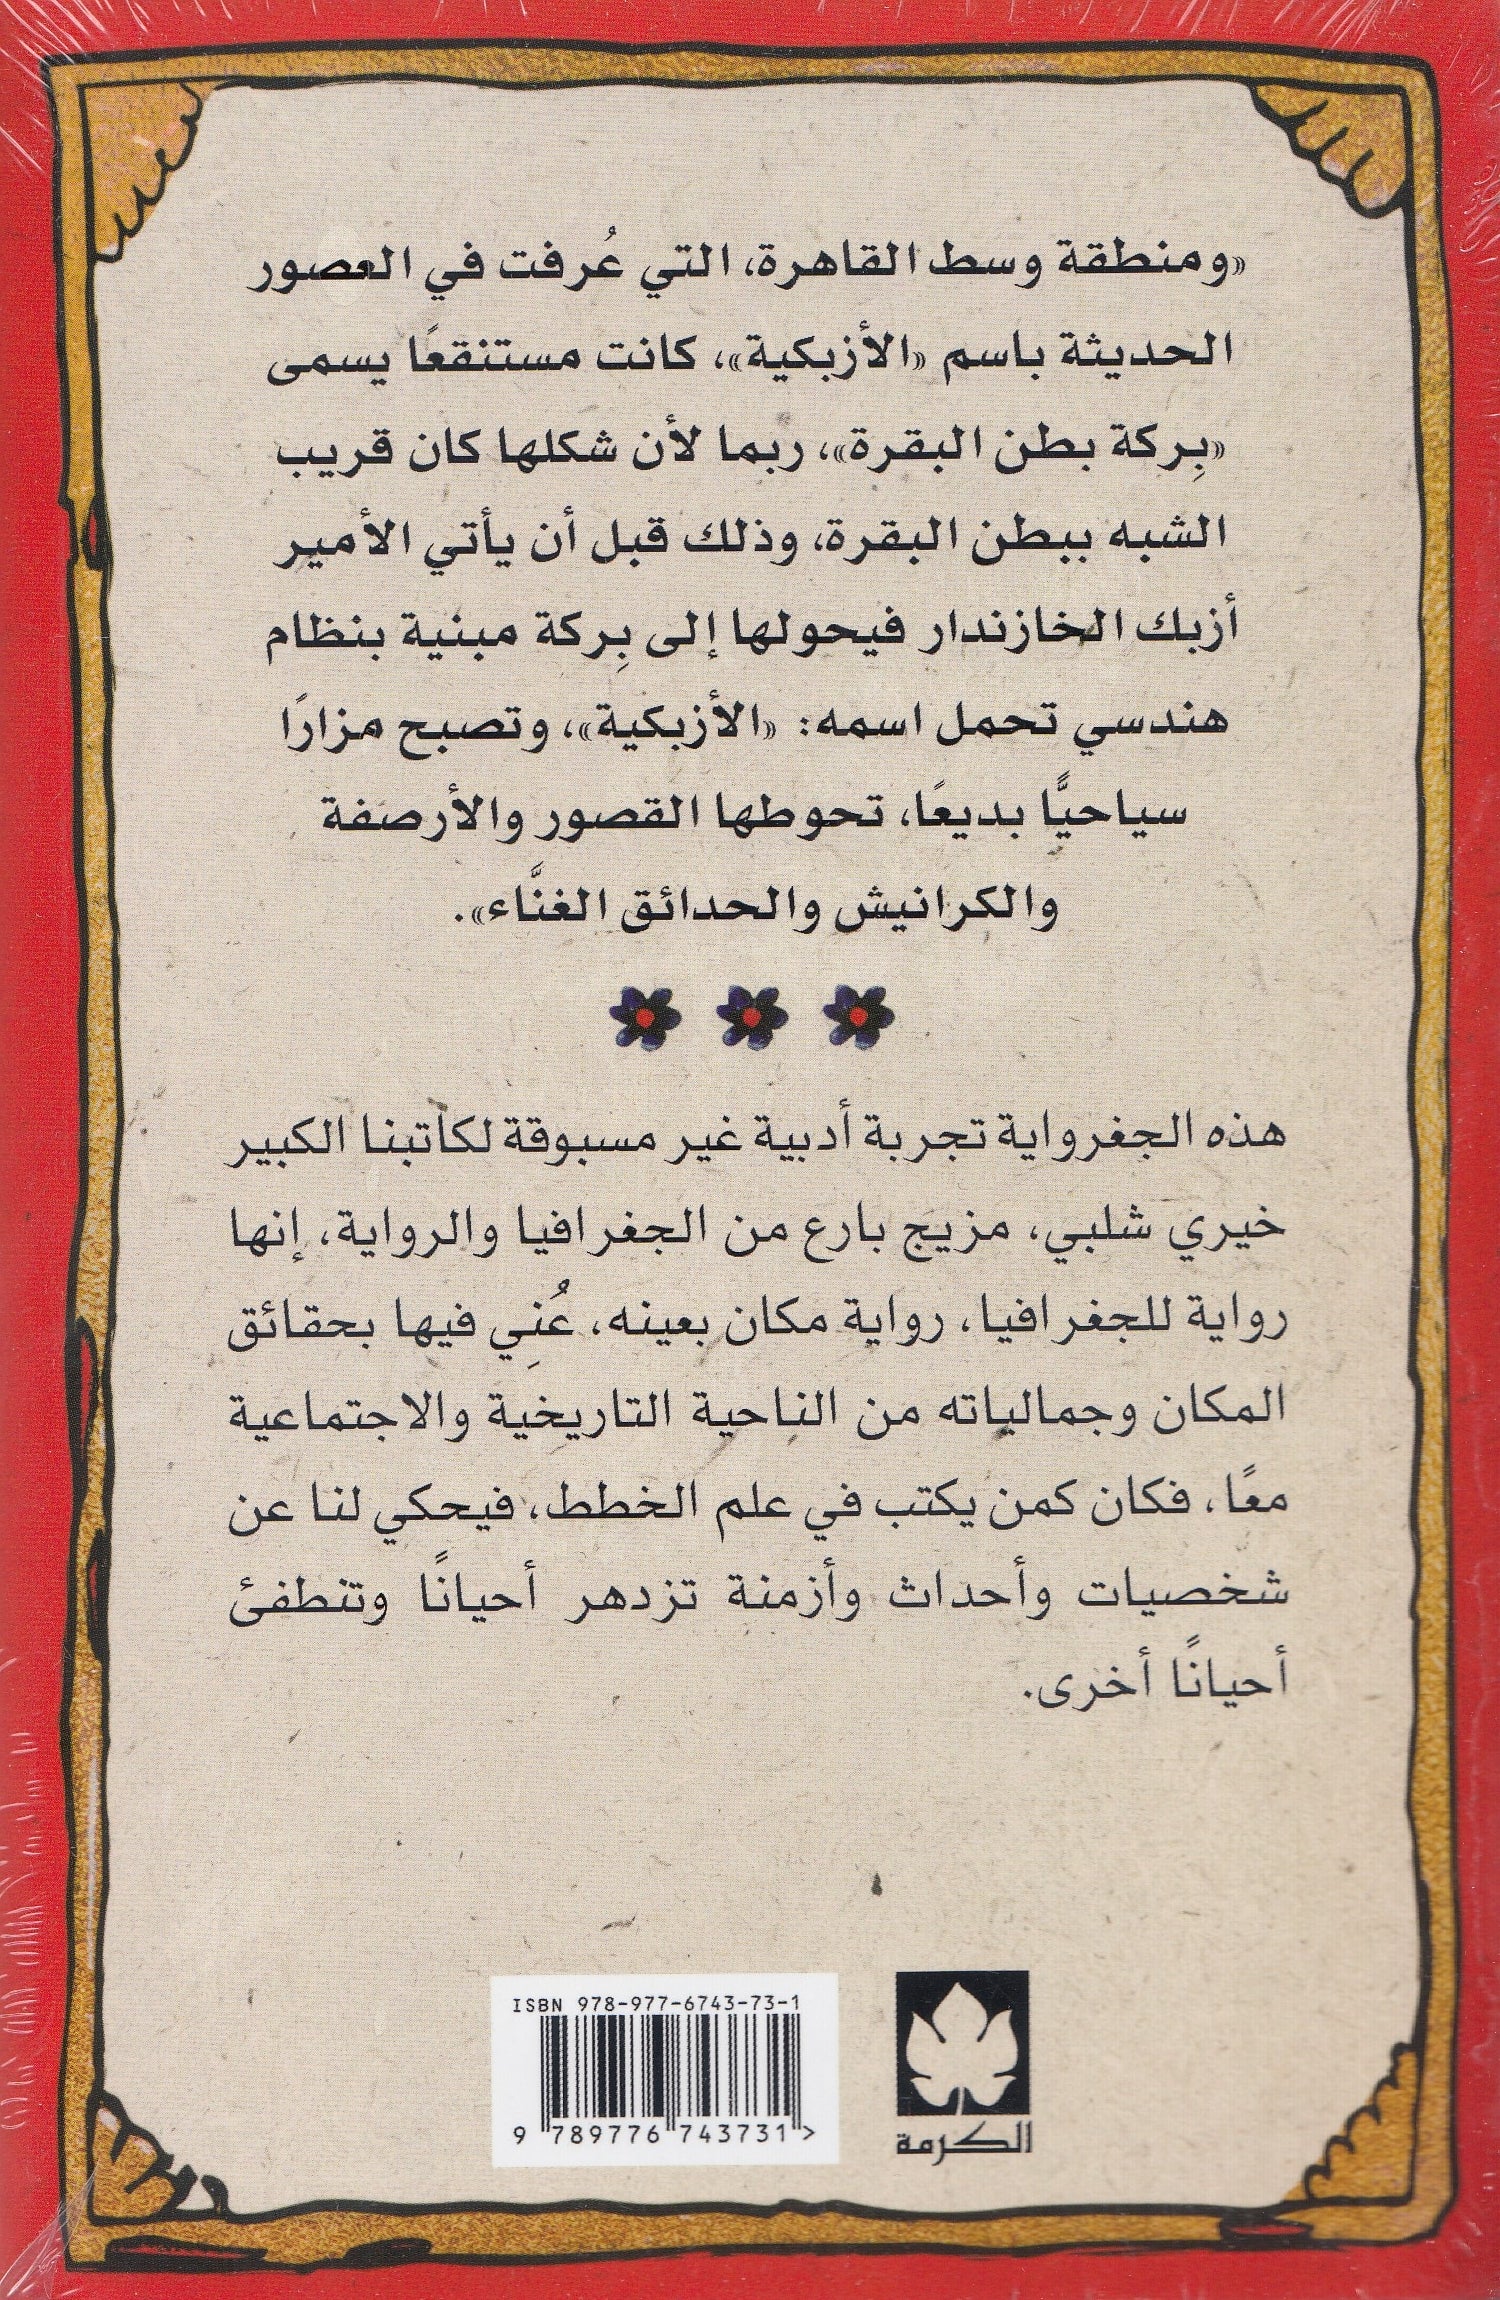 «ومنطقة وسط القاهرة، التي عُرفت في العصور
الحديثة باسم «الأزبكية»، كانت مستنقعًا يسمى
«بِركة بطن البقرة»، ربما لأن شكلها كان قريب
الشبه ببطن البقرة، وذلك قبل أن يأتي الأمير
أزبك الخازندار فيحولها إلى بِركة مبنية بنظام
هندسي تحمل اسمه: «الأزبكية»، وتصبح مزارًا
سياحيًّا بديعًا، تحوطها القصور والأرصفة
والكرانيش والحدائق الغنَّاء».
هذه الجغرواية تجربة أدبية غير مسبوقة لكاتبنا الكبير
خيري شلبي، مزيج بارع من الجغرافيا والرواية، إنها
رواية للجغرافيا، رواية مكان بعينه، عُنِي فيها بحقائق
المكان وجمالياته من الناحية التاريخية والاجتماعية
معًا، فكان كمن يكتب في علم الخطط، فيحكي لنا عن
شخصيات وأحداث وأزمنة تزدهر أحيانًا وتنطفئ
أحيانًا أخرى.
ISBN 978-977-6743-73-1
9 789776 743731 >
الكرمة